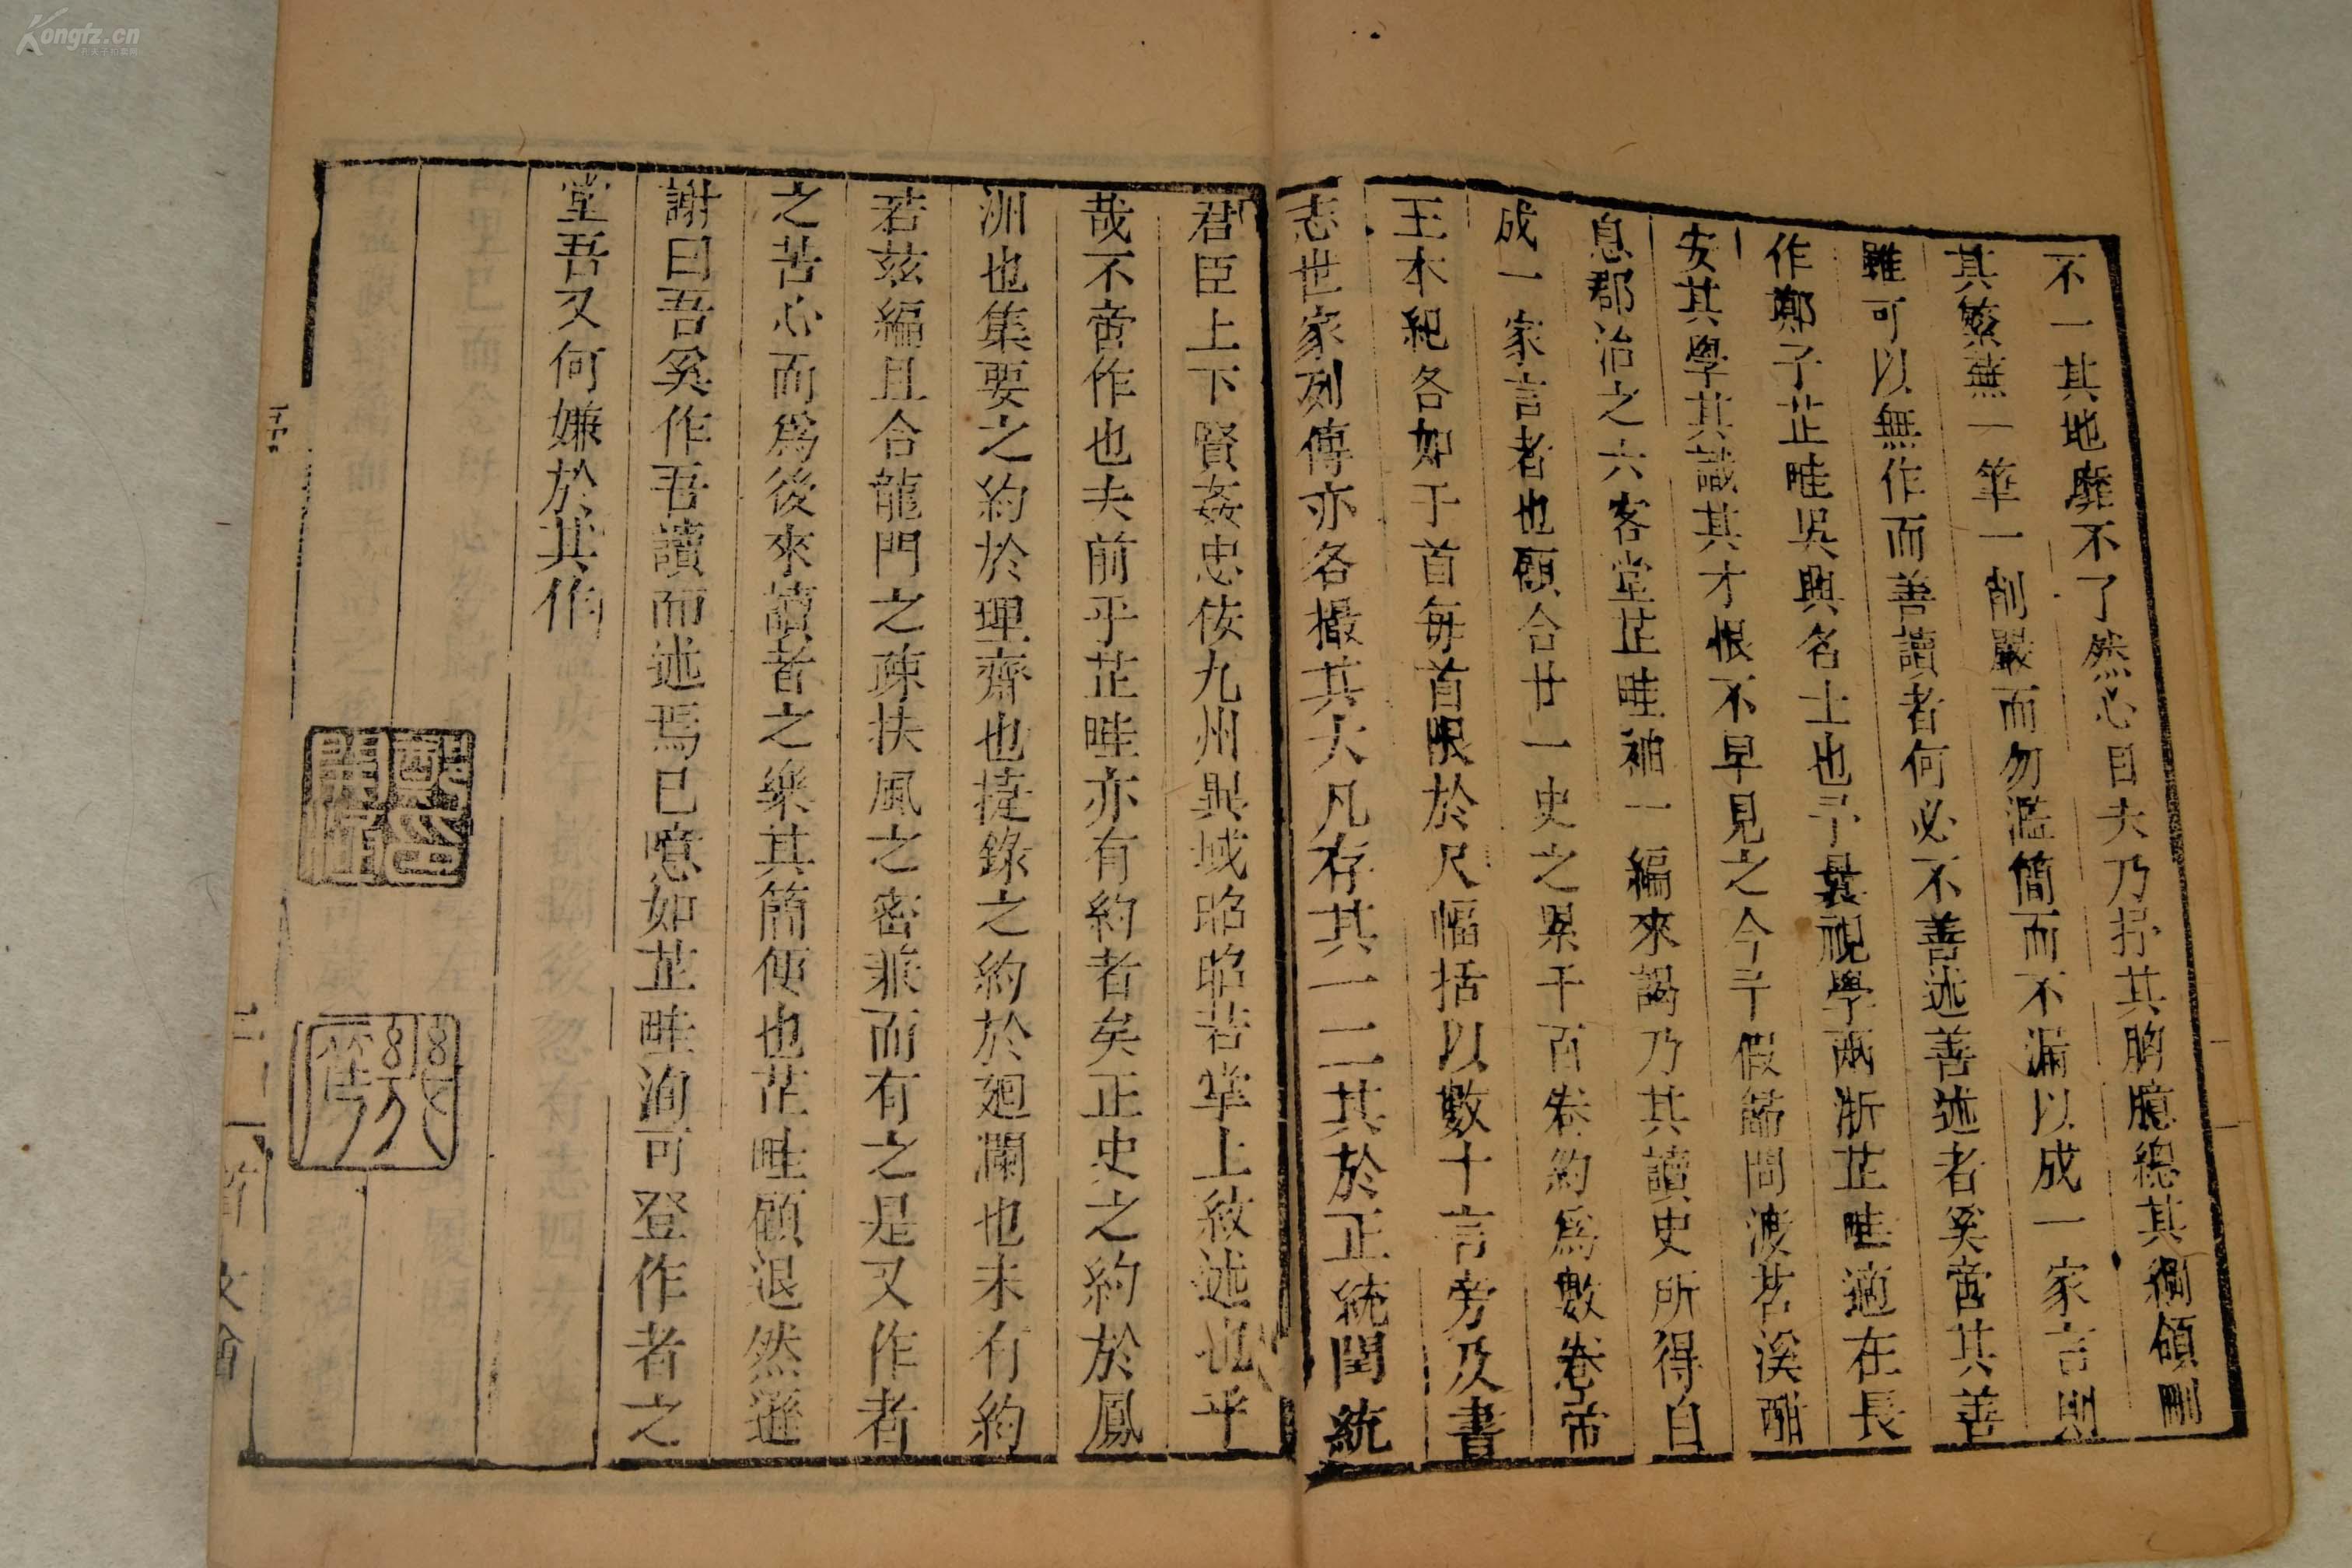 不一其地靡不了然心目夫乃抒其胸臆總其綱領刪
其繁蕪一筆一削嚴而勿濫簡而不漏以成一家言則
雖可以無作而善讀者何必不善述善述者奚啻其善
作鄭子芷畦吳興名士也予曩視學兩浙芷畦適在長
安其學其識其才恨不早見之今予假歸問渡苕溪酣
息郡治之六客堂芷畦袖一編來謁乃其讀史所得自
成一家言者也顧合廿一史之累千百卷約為數卷帝
王本紀各如干首每首限於尺幅括以數十言旁及書
志世家列傳亦各撮其大凡存其一二其於正統閏統
君臣上下賢姦忠佞九州異域昭昭若掌上紋述也乎
哉不啻作也夫前乎芷畦亦有約者矣正史之約於鳳
洲也集要之約於理齋也捷錄之約於廻瀾也未有約
若茲編且合龍門之疎扶風之密兼而有之是又作者
之苦心而為後來讀者之樂其簡便也芷畦顧退然遜
謝曰吾奚作吾讀而述焉已噫如芷畦洵可登作者之
堂吾又何嫌於其作
Kongfz.cn